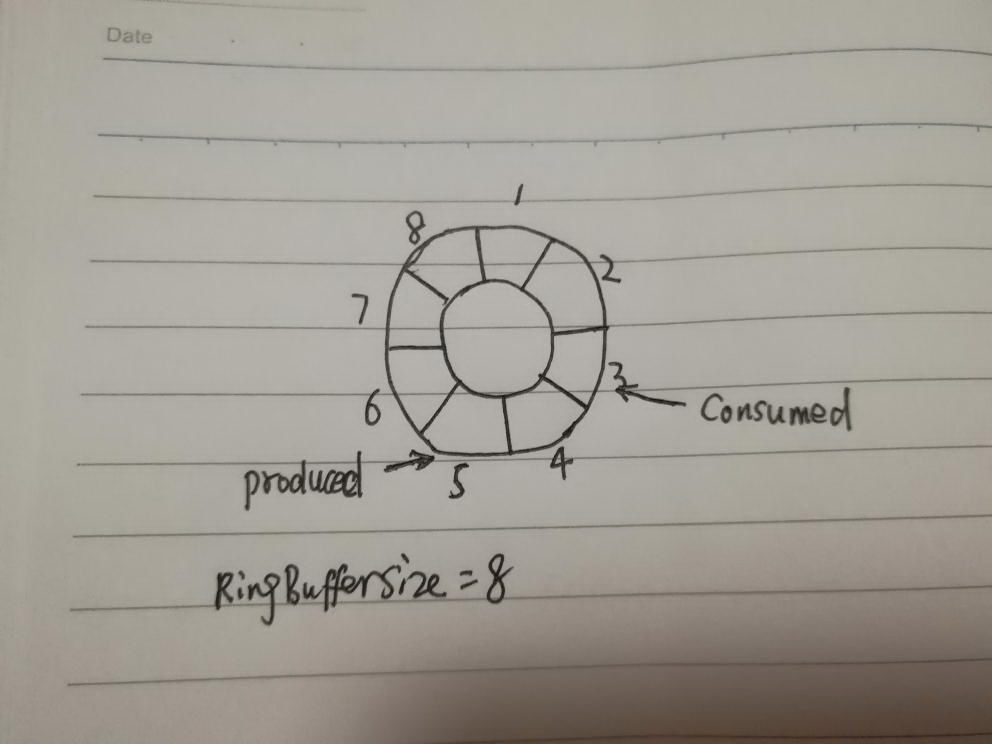 Date
1
8
2
7
3
6
Consumed
4
produced
5
RingBufferSize = 8